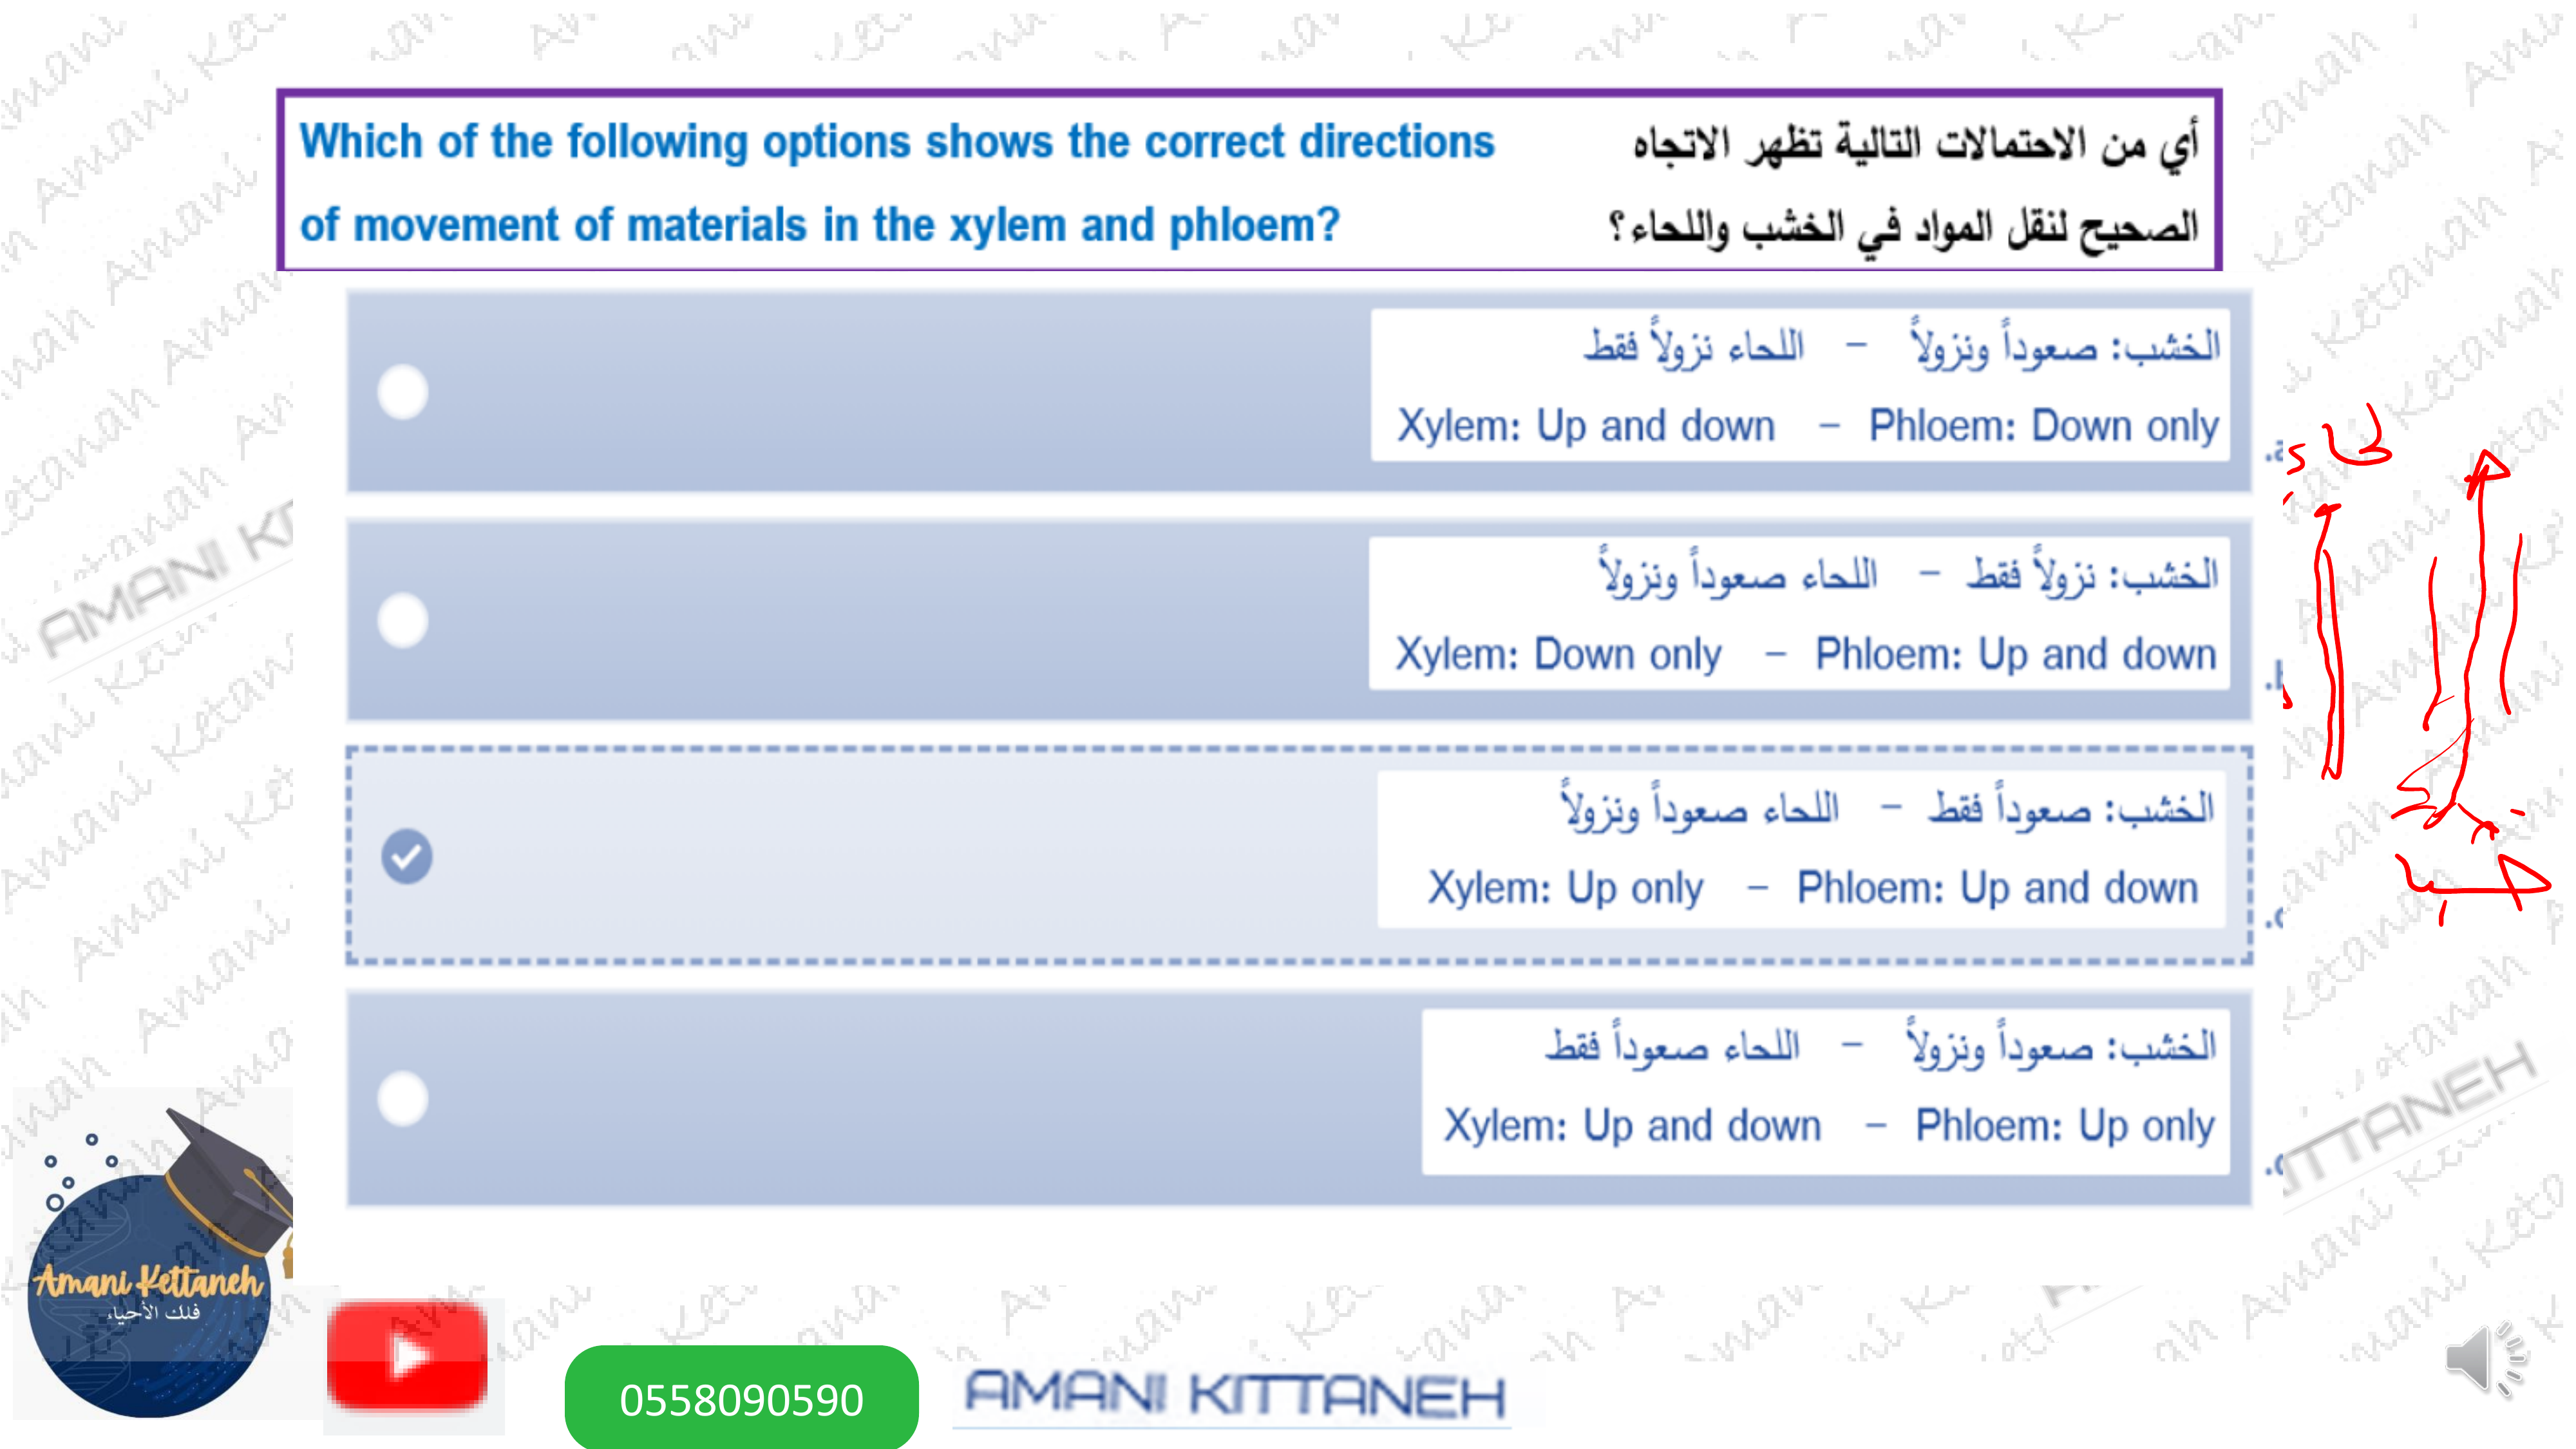 Which of the following options shows the correct directions
of movement of materials in the xylem and phloem?
أي من الاحتمالات التالية تظهر الاتجاه
الصحيح لنقل المواد في الخشب واللحاء؟
الخشب: صعوداً ونزولاً – اللحاء نزولاً فقط
Xylem: Up and down – Phloem: Down only
الخشب: نزولاً فقط – اللحاء صعوداً ونزولاً
Xylem: Down only – Phloem: Up and down
الخشب: صعوداً فقط – اللحاء صعوداً ونزولاً
Xylem: Up only – Phloem: Up and down
الخشب: صعوداً ونزولاً – اللحاء صعوداً فقط
Xylem: Up and down – Phloem: Up only
Amani Kettaneh
فلك الأحياء
0558090590
AMANI KITTANEH